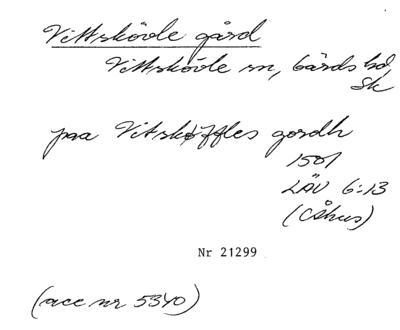 Vittskövle gård
Vittskövle sn, Gärds hd,
Sk
paa Vitskøffles gordh
1501
LÄU 6:13
(Åhus)
Nr 21299
(acc nr 5340)